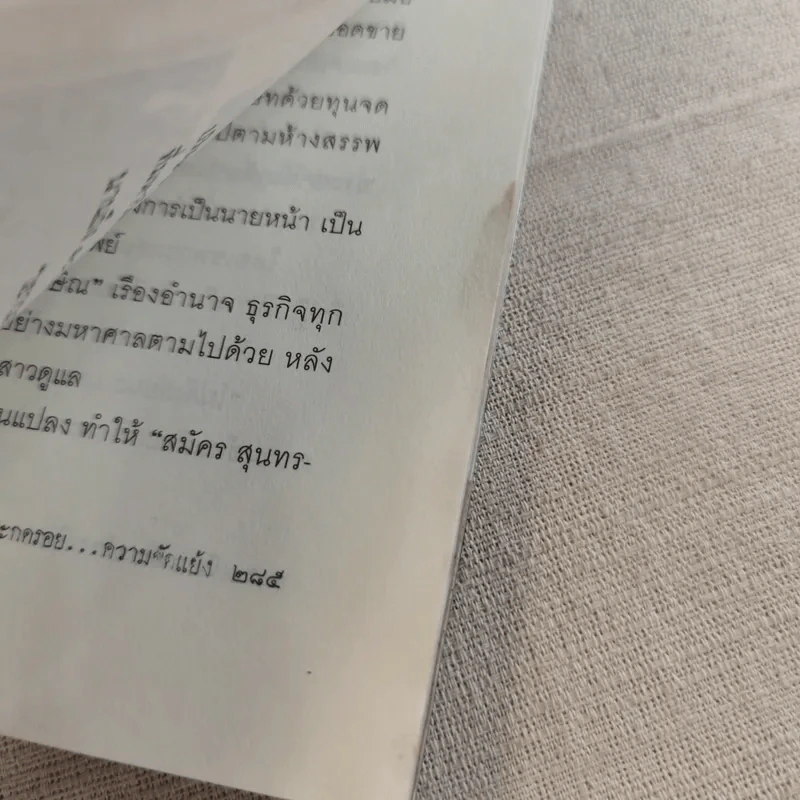 อดขาย
ด้วยทุนจด
ปตามห้างสรรพ
การเป็นนายหน้า เป็น
ษิณ” เรืองอำนาจ ธุรกิจทุก
อย่างมหาศาลตามไปด้วย หลัง
สาวดูแล
นแปลง ทำให้ “สมัคร สุนทร-
ะกดรอย...ความขัดแย้ง ๒๘๕